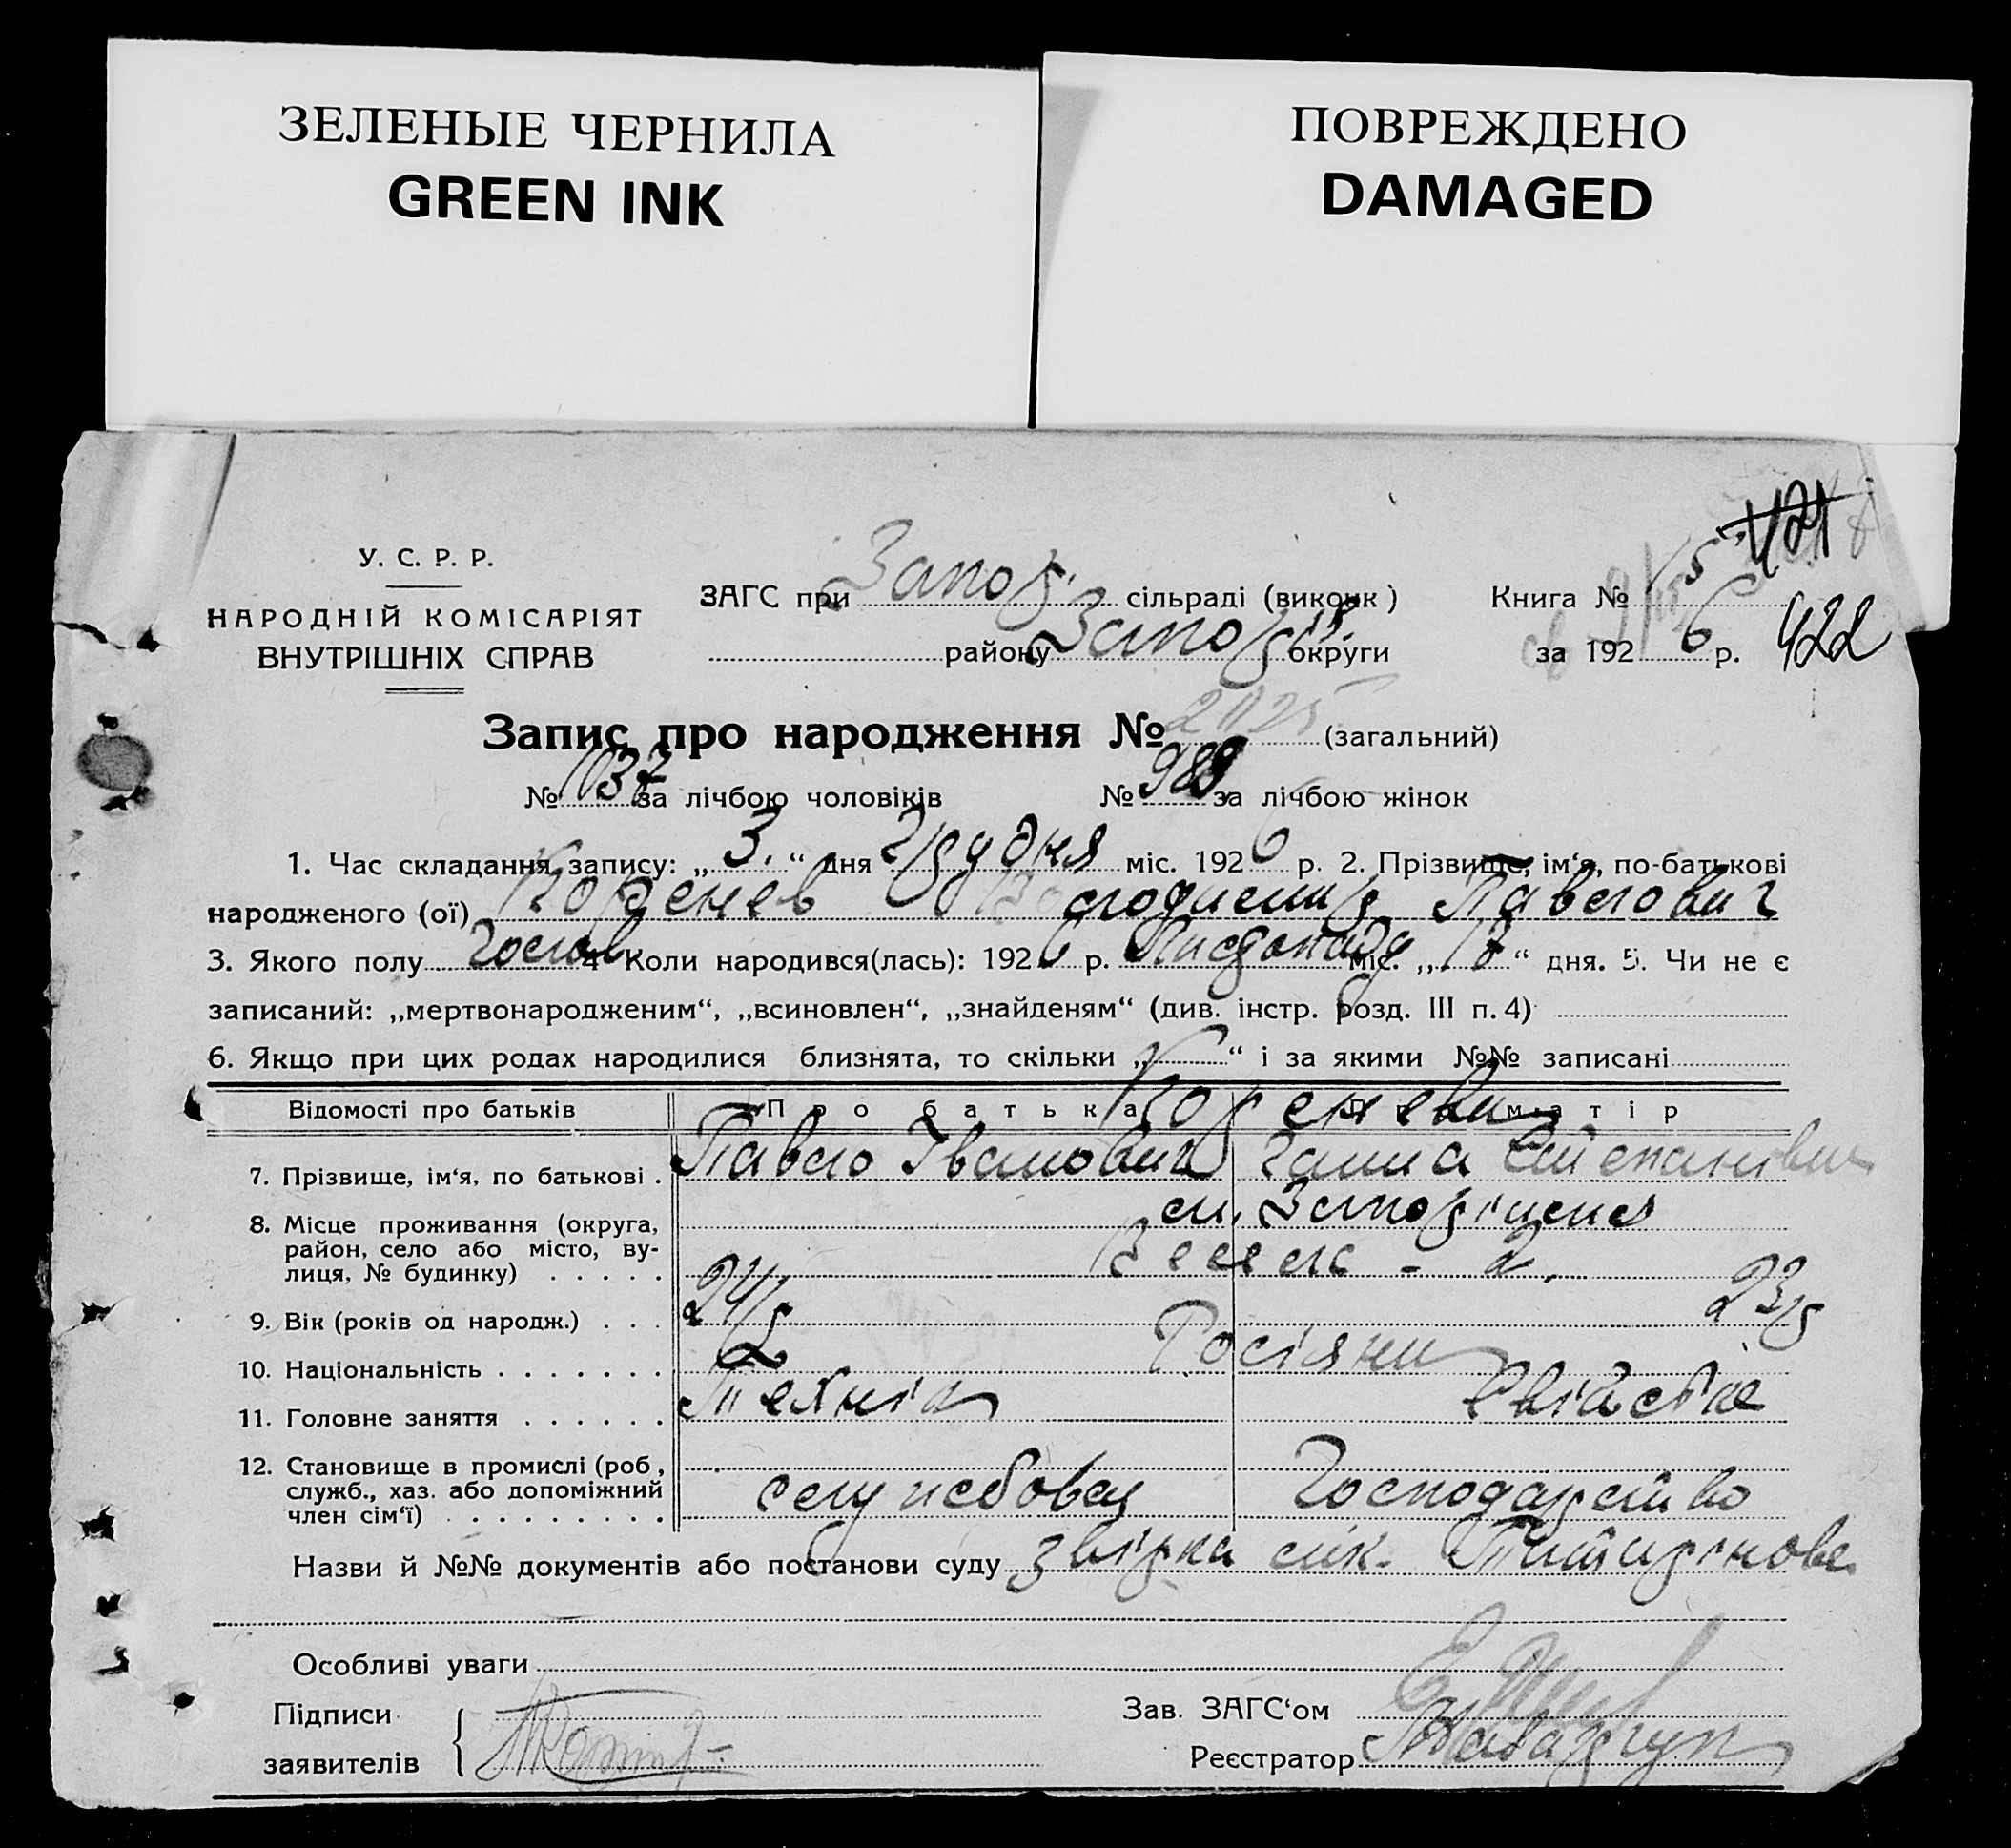 ЗЕЛЕНЫЕ ЧЕРНИЛА
GREEN INK
ПОВРЕЖДЕНО
DAMAGED
У. С. Р. Р.
НАРОДНІЙ КОМІСАРІЯТ
ВНУТРІШНІХ СПРАВ
ЗАГС при Запоз. сільраді (виконк)
району Запоз округи
Книга № 5 421
за 192 6 р. 422
Запис про народження № 2025 (загальний)
№ 1037 за лічбою чоловіків № 989 за лічбою жінок
1. Час складання запису: „ 3. “ дня Грудня міс. 192 6 р. 2. Прізвище, ім‘я, по-батькові
народженого (ої) Коренев Володимир Павлович
3. Якого полу Голов 4 Коли народився(лась): 192 6 р. Листопаду міс. „ 17 “ дня. 5. Чи не є
записаний: „мертвонародженим“, „всиновлен“, „знайденям“ (див. інстр. розд. III п. 4)
6. Якщо при цих родах народилися близнята, то скільки „ “ і за якими №№ записані
Відомості про батьків Про батька Про матір
Кореневи
7. Прізвище, ім‘я, по батькові . Павло Іванович Ганна Степановна
8. Місце проживання (округа,
район, село або місто, ву-
лиця, № будинку) . . . . .
м. Запоріжжя
9. Вік (років од народж.) . . . 24 р 23 р
10. Національність . . . . . . . Росіяни
11. Головне заняття . . . . . . Технік
12. Становище в промислі (роб,
служб., хаз. або допоміжний
член сім‘ї) . . . . . . . . .
служебовец Господарство
Назви й №№ документів або постанови суду звірка
Особливі уваги
Підписи
заявителів
Зав. ЗАГС‘ом
Реєстратор